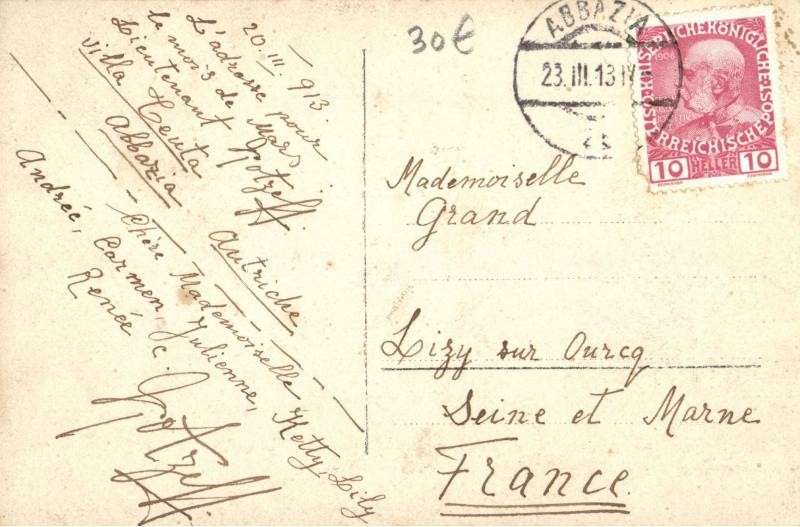 20. III 913.
L'adresse pour
le mois de Mars
Lieutenant Gotzeff.
Villa Tenta
Abbazia Autriche
Chère Mademoiselle Ketty, Lily
Andrée, Carmen, Julienne,
Renée c.
Gotzeff
30€
ABBAZIA
23.III.13
KAISERLICHE KÖNIGLICHE
ÖSTERREICHISCHE POST
1908
10 HELLER 10
Mademoiselle
Grand
Lizy sur Ourcq
Seine et Marne
France.